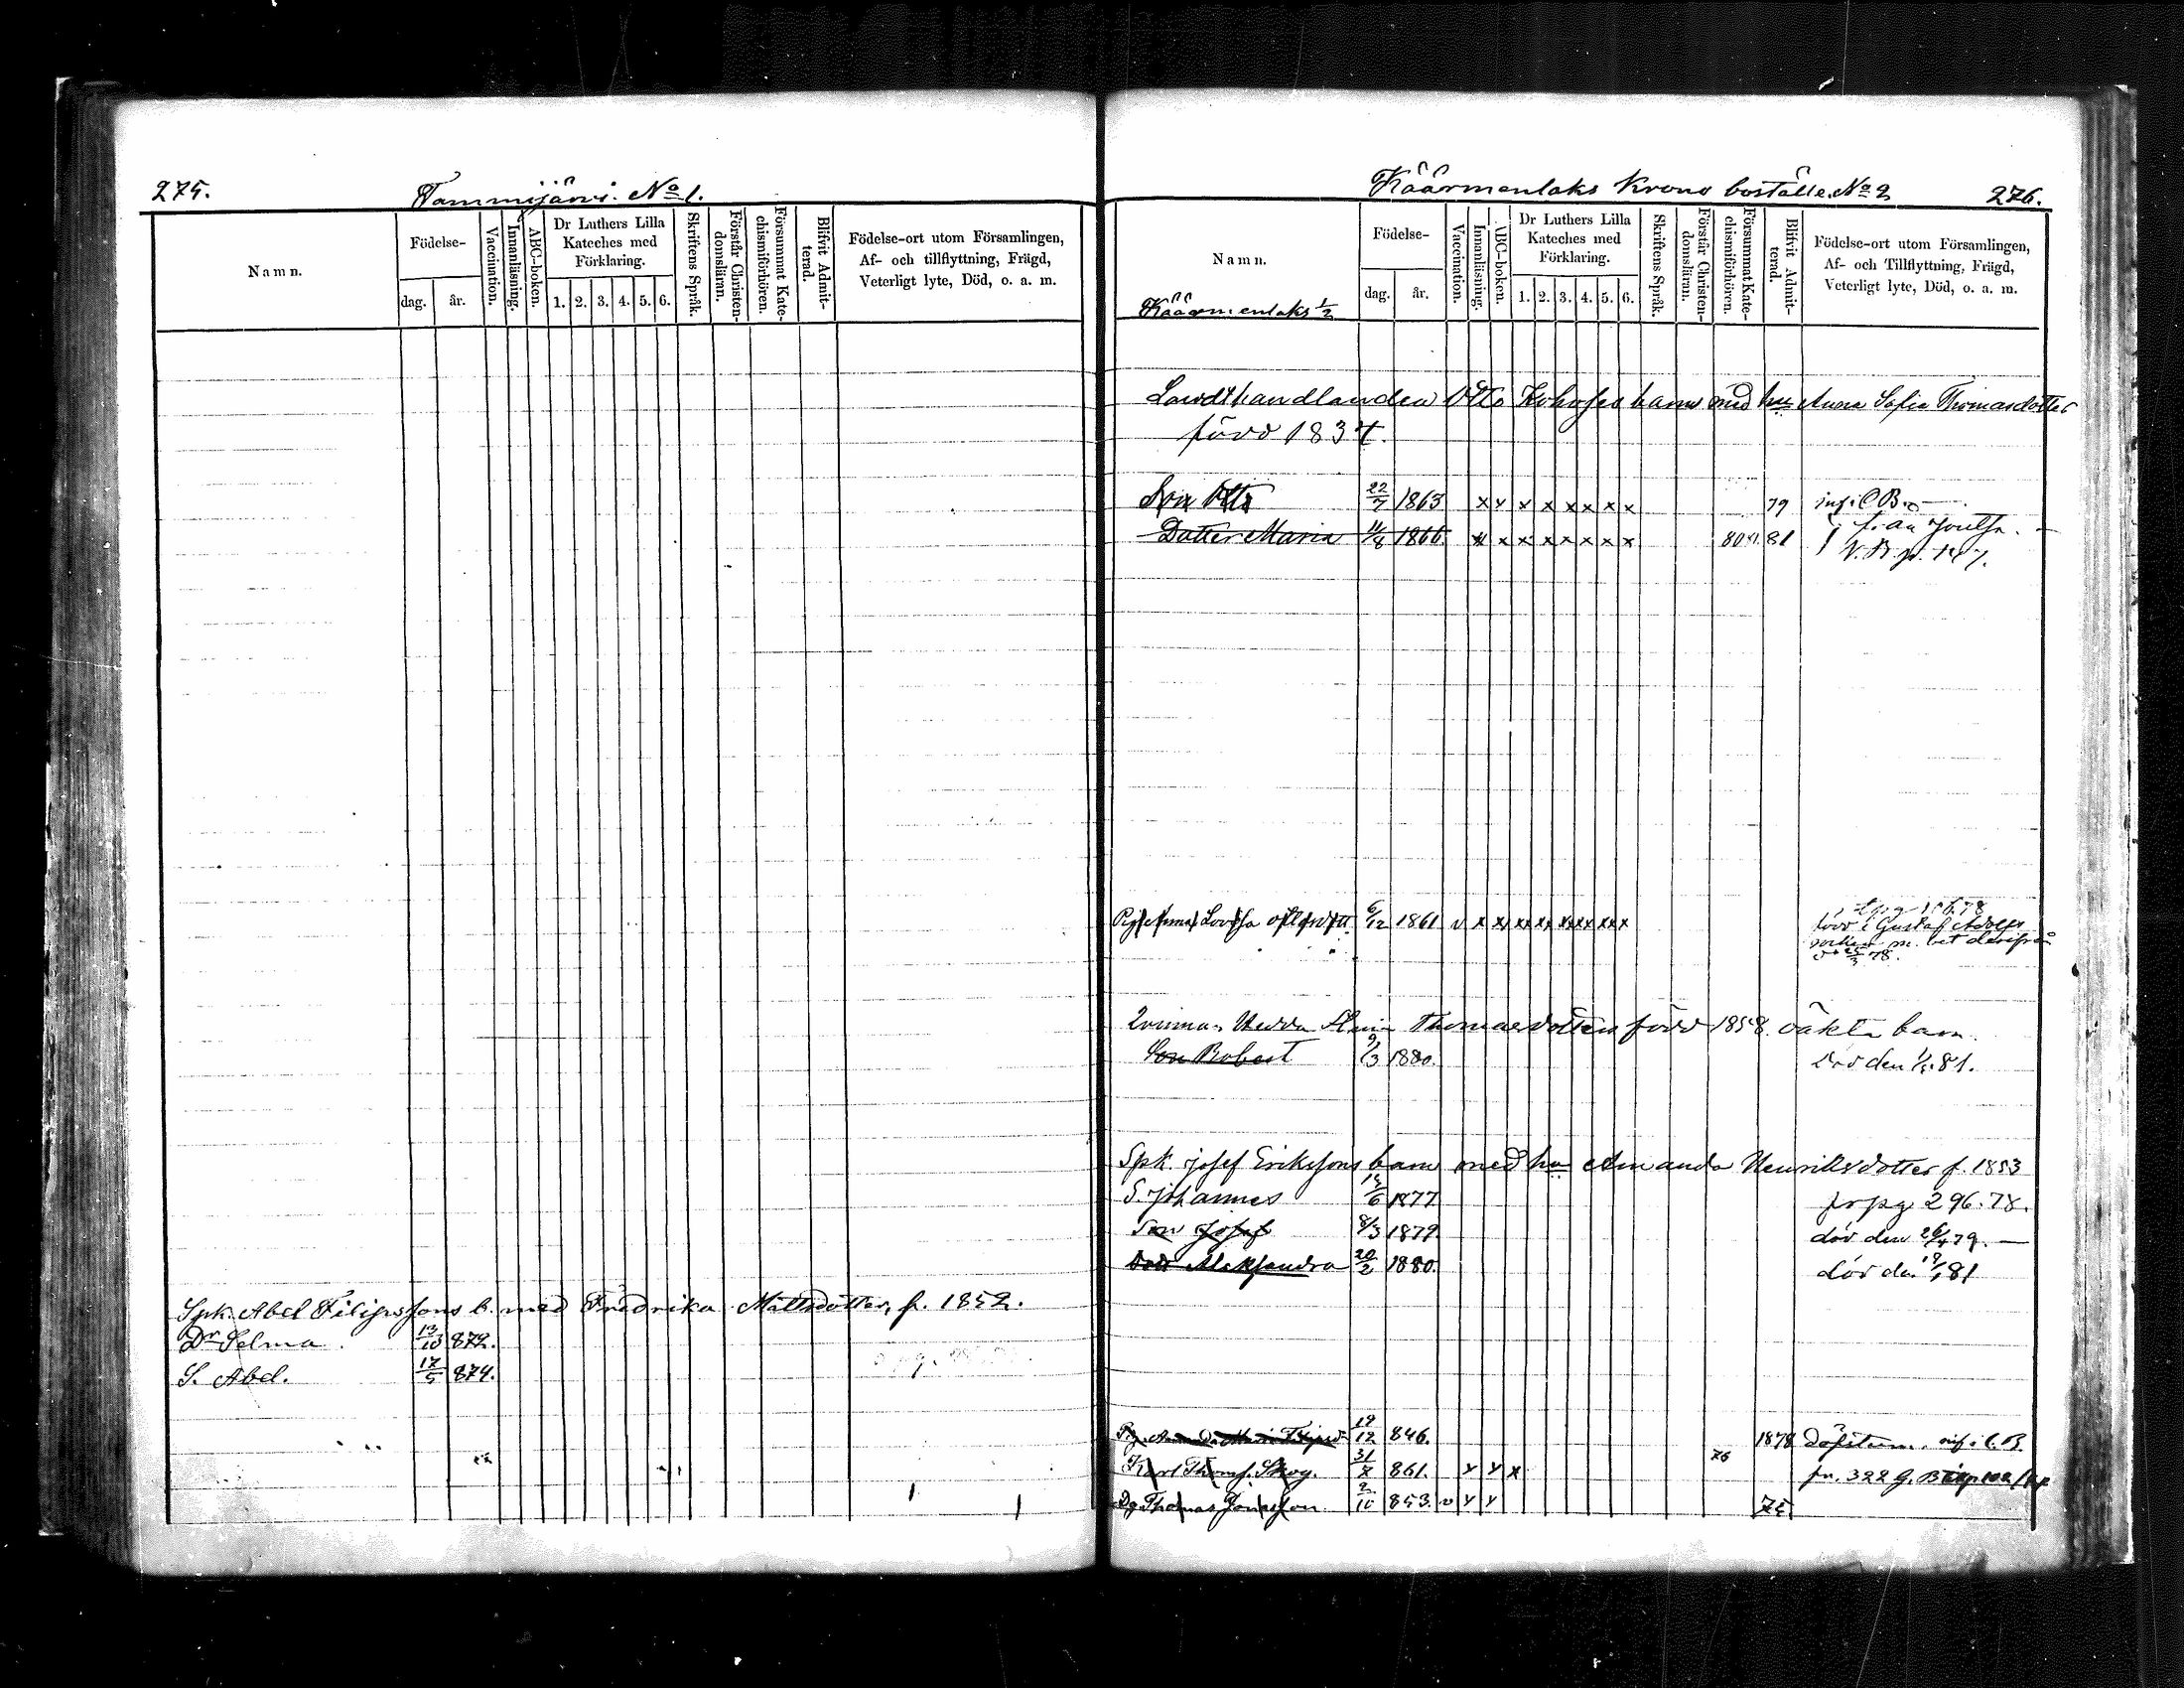 275.
Tammijärvi. No 1.
Namn.
Födelse-
dag.
år.
Vaccination.
Innanläsning.
ABC-boken.
Dr Luthers Lilla
Kateches med
Förklaring.
1. 2. 3. 4. 5. 6.
Skriftens Språk.
Förstår Christen-
domsläran.
Försummat Kate-
chismiförhören.
Blifvit Admit-
terad.
Födelse-ort utom Församlingen,
Af- och tillflyttning, Frägd,
Veterligt lyte, Död, o. a. m.
Spk. Abel Filipssons b. med Fredrika Mattsdotter, f. 1852.
Dr Selma. 13/10 872.
S. Abel. 17/5 874.
Käärmenlaks Krono boställe. No 2
276.
Namn.
Käärmenlaks 1/2
Födelse-
dag.
år.
Vaccination.
Innanläsning.
ABC-boken.
Dr Luthers Lilla
Kateches med
Förklaring.
1. 2. 3. 4. 5. 6.
Skriftens Språk.
Förstår Christen-
domsläran.
Försummat Kate-
chismiförhören.
Blifvit Admit-
terad.
Födelse-ort utom Församlingen,
Af- och Tillflyttning, Frägd,
Veterligt lyte, Död, o. a. m.
Landthandlanden Otto barn med hu Anna Sofia Thomasdotter
född 1834.
Son Otto 22/7 1863 x v x x x x x x 79 inf. i C.B.
Dotter Maria 11/8 1866 x x x x x x x x 80 81 från Joutsa.
Lovisa 6/12 1861 v x x x x x x x x x x x x x
född i Gustaf Adolfs
socken m. bet derifrån
25/3 78.
Qvinnan Hedda Thomasdotters född 1858. oäkta barn.
Son Robert 9/3 1880. död den 81.
Spk. Josef Erikssons barn med hu Amanda Henriksdotter f. 1853
S. Johannes 1877 pg 296. 78.
Son Josef 8/3 1879. död den 79.
Aleksandra 20/2 1880. död den 81
19/12 846. 1878 döfstum. inf. i C.B.
Karl Thomss. Skog. 31/7 861. v v x 76 322
Dg Thomas 853. v v v 75